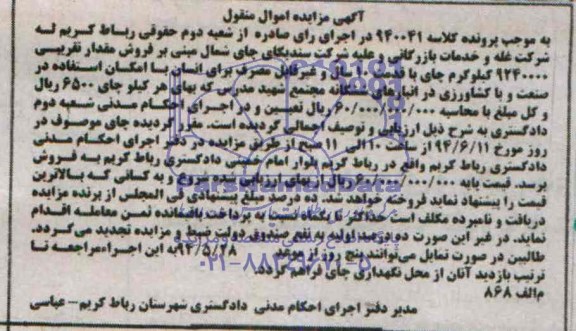 آگهی مزایده اموال منقول
به موجب پرونده کلاسه ۹۴۰۰۴۱ در اجرای رای صادره از شعبه دوم حقوقی رباط کریم له
شرکت غله و خدمات بازرگانی و علیه شرکت سندیکای چای شمال مبنی بر فروش مقدار تقریبی
۹۲۴۰۰۰۰ کیلوگرم چای با قدمت ۱۰ سال و غیرقابل مصرف برای انسان با امکان استفاده در
صنعت و یا کشاورزی در انبارهای مجتمع شهید مدرس که بهای هر کیلو چای ۶۵۰۰ ریال
و کل مبلغ با محاسبه ۶۰/۰۰۰/۰۰۰/۰۰۰ ریال تعیین و در اجرای احکام مدنی شعبه دوم
دادگستری به شرح ذیل ارزیابی و توصیف اجمالی گردیده است. گردیده چای موصوف در
روز مورخ ۹۴/۶/۱۱ از ساعت ۱۰ الی ۱۱ صبح از طریق مزایده در دفتر اجرای احکام مدنی
دادگستری رباط کریم واقع در رباط کریم بلوار امام خمینی دادگستری رباط کریم به فروش
برسد. قیمت پایه ۶۰/۰۰۰/۰۰۰/۰۰۰ ریال بهای ارزیابی شده شروع و به کسانی که بالاترین
قیمت را پیشنهاد نماید فروخته خواهد شد. ده درصد مبلغ پیشنهادی فی المجلس از برنده مزایده
دریافت و نامبرده مکلف است حداکثر تا یکماه نسبت به پرداخت باقیمانده ثمن معامله اقدام
نماید. در غیر این صورت ده درصد اولیه به نفع صندوق دولت ضبط و مزایده تجدید می‌گردد.
طالبین در صورت تمایل می‌توانند پنج روز از موعد ۹۴/۵/۲۸ به این اجراء مراجعه تا
ترتیب بازدید آنان از محل نگهداری چای فراهم گردد.
م الف ۸۶۸
مدیر دفتر اجرای احکام مدنی دادگستری شهرستان رباط کریم - عباسی
ParsNamadData
۰۲۱-۸۸۳۴۹۶۷۰-۵